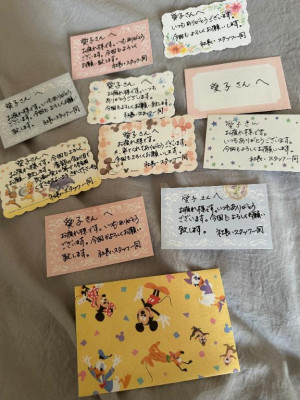 愛子さんへ
いつもありがとうございます。
今回もよろしくお願い致します。
社長・スタッフ一同
愛子さんへ
お疲れ様です。いつもありがとう
ございます。今回もよろしくお願い
致します。
社長・スタッフ一同
愛子さんへ
お疲れ様です。いつもありがとう
ございます。今回もよろしくお願い
致します。
社長・スタッフ一同
愛子さんへ
お疲れ様です。いつも
ありがとうございます。
社長・スタッフ一同
愛子さんへ
愛子さんへ
お疲れ様です。
社長・スタッフ一同
愛子さんへ
お疲れ様です。
来てくれてありがとうございます。
今回もよろしくお願い致します。
社長・スタッフ一同
愛子さんへ
お疲れ様です。
いつもありがとうございます。
今回もよろしくお願い致します。
社長・スタッフ一同
愛子さんへ
お疲れ様です。いつもありがとう
ございます。今回もよろしくお願い
致します。
社長・スタッフ一同
愛子さんへ
お疲れ様です。いつもありがとう
ございます。今回もよろしくお願い
致します。
社長・スタッフ一同